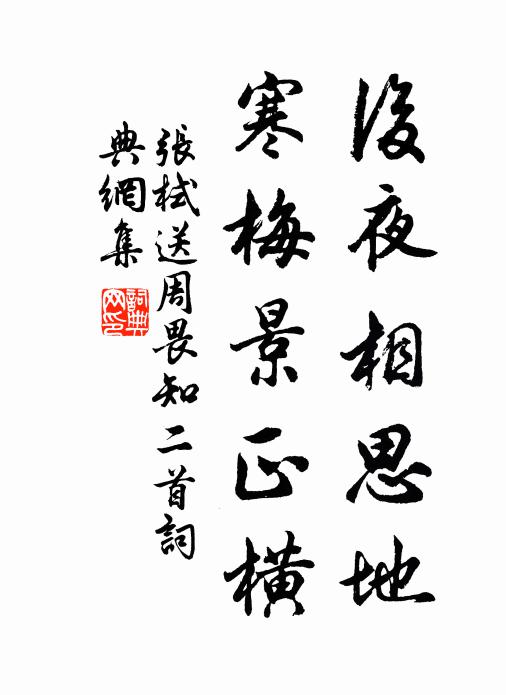 後夜相思地
寒梅景正橫
張栻送周畏知二首詞
典網集
詞典
网印